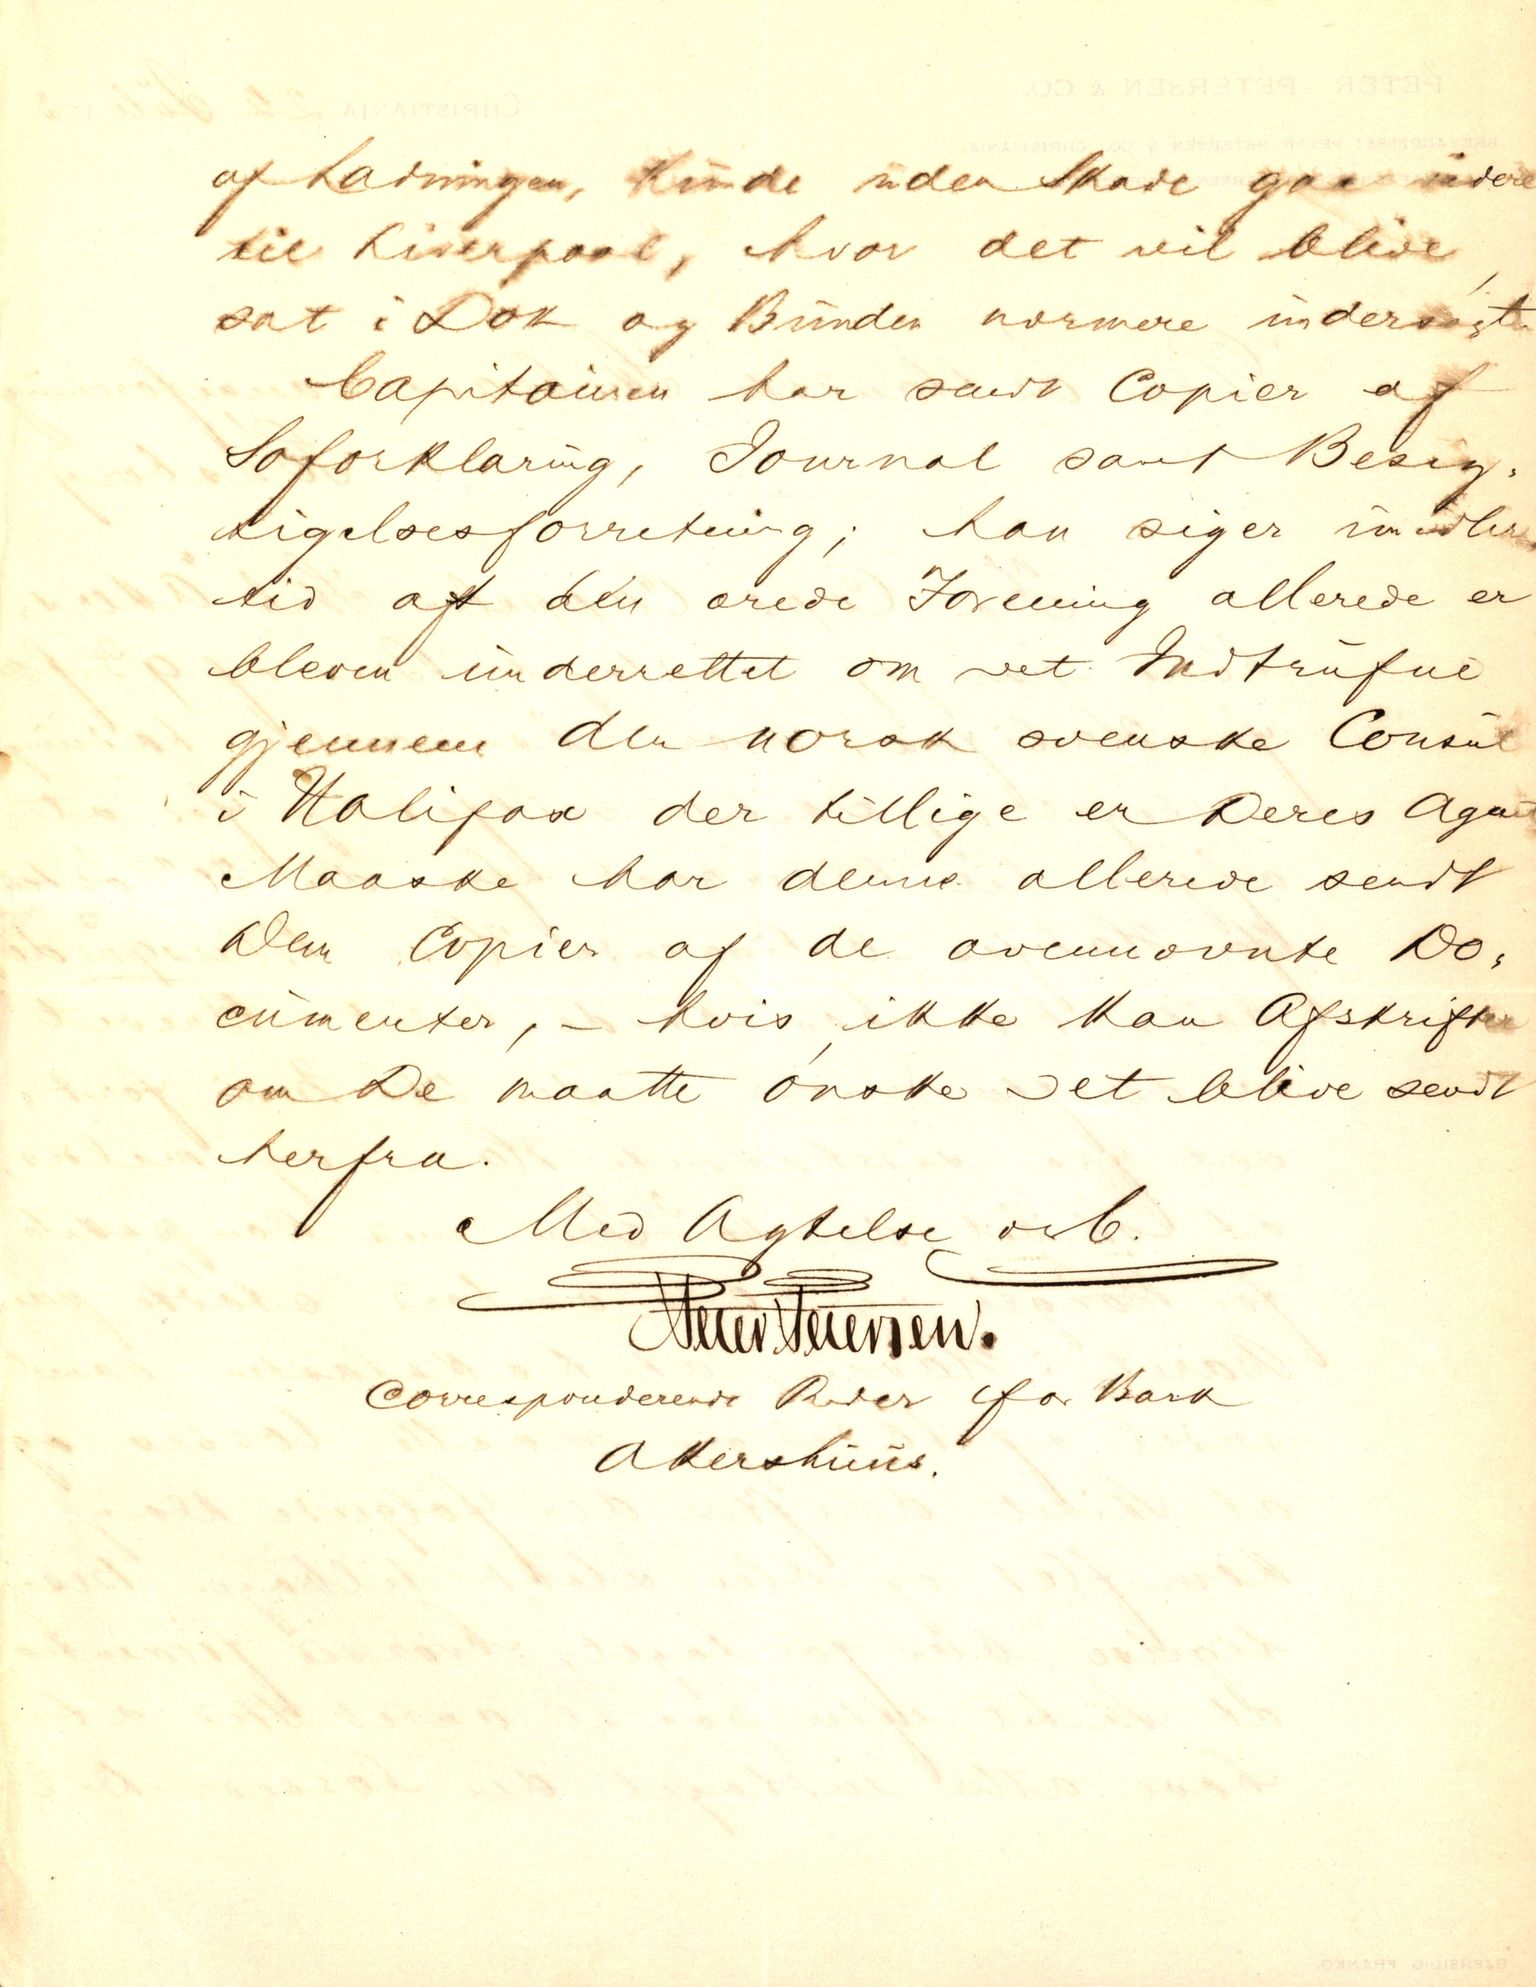 af Ladningen, kunde uden Skade gaa videre
til Liverpool, hvor det vil blive
sat i Dok og Bunden nærmere undersøgt
Capitainen har sendt Copier af
Søforklaring, Journal samt Besig-
tigelsesforretning; han siger imidler-
tid at den ærede Forening allerede er
bleven underrettet om det Indtrufne
gjennem den norsk svenske Consul
i Halifax der tillige er Deres Agent
Maaske har denne allerede sendt
Dem Copier af de ovennævnte Do-
cumenter, – hvis ikke kan Afskrifter
om De maatte ønske det blive sendt
herfra.
Med Agtelse erb.
Peter Petersen.
Corresponderende Reder for Bark
Akershuus.
PETER PETERSEN & CO.
CHRISTIANIA 22